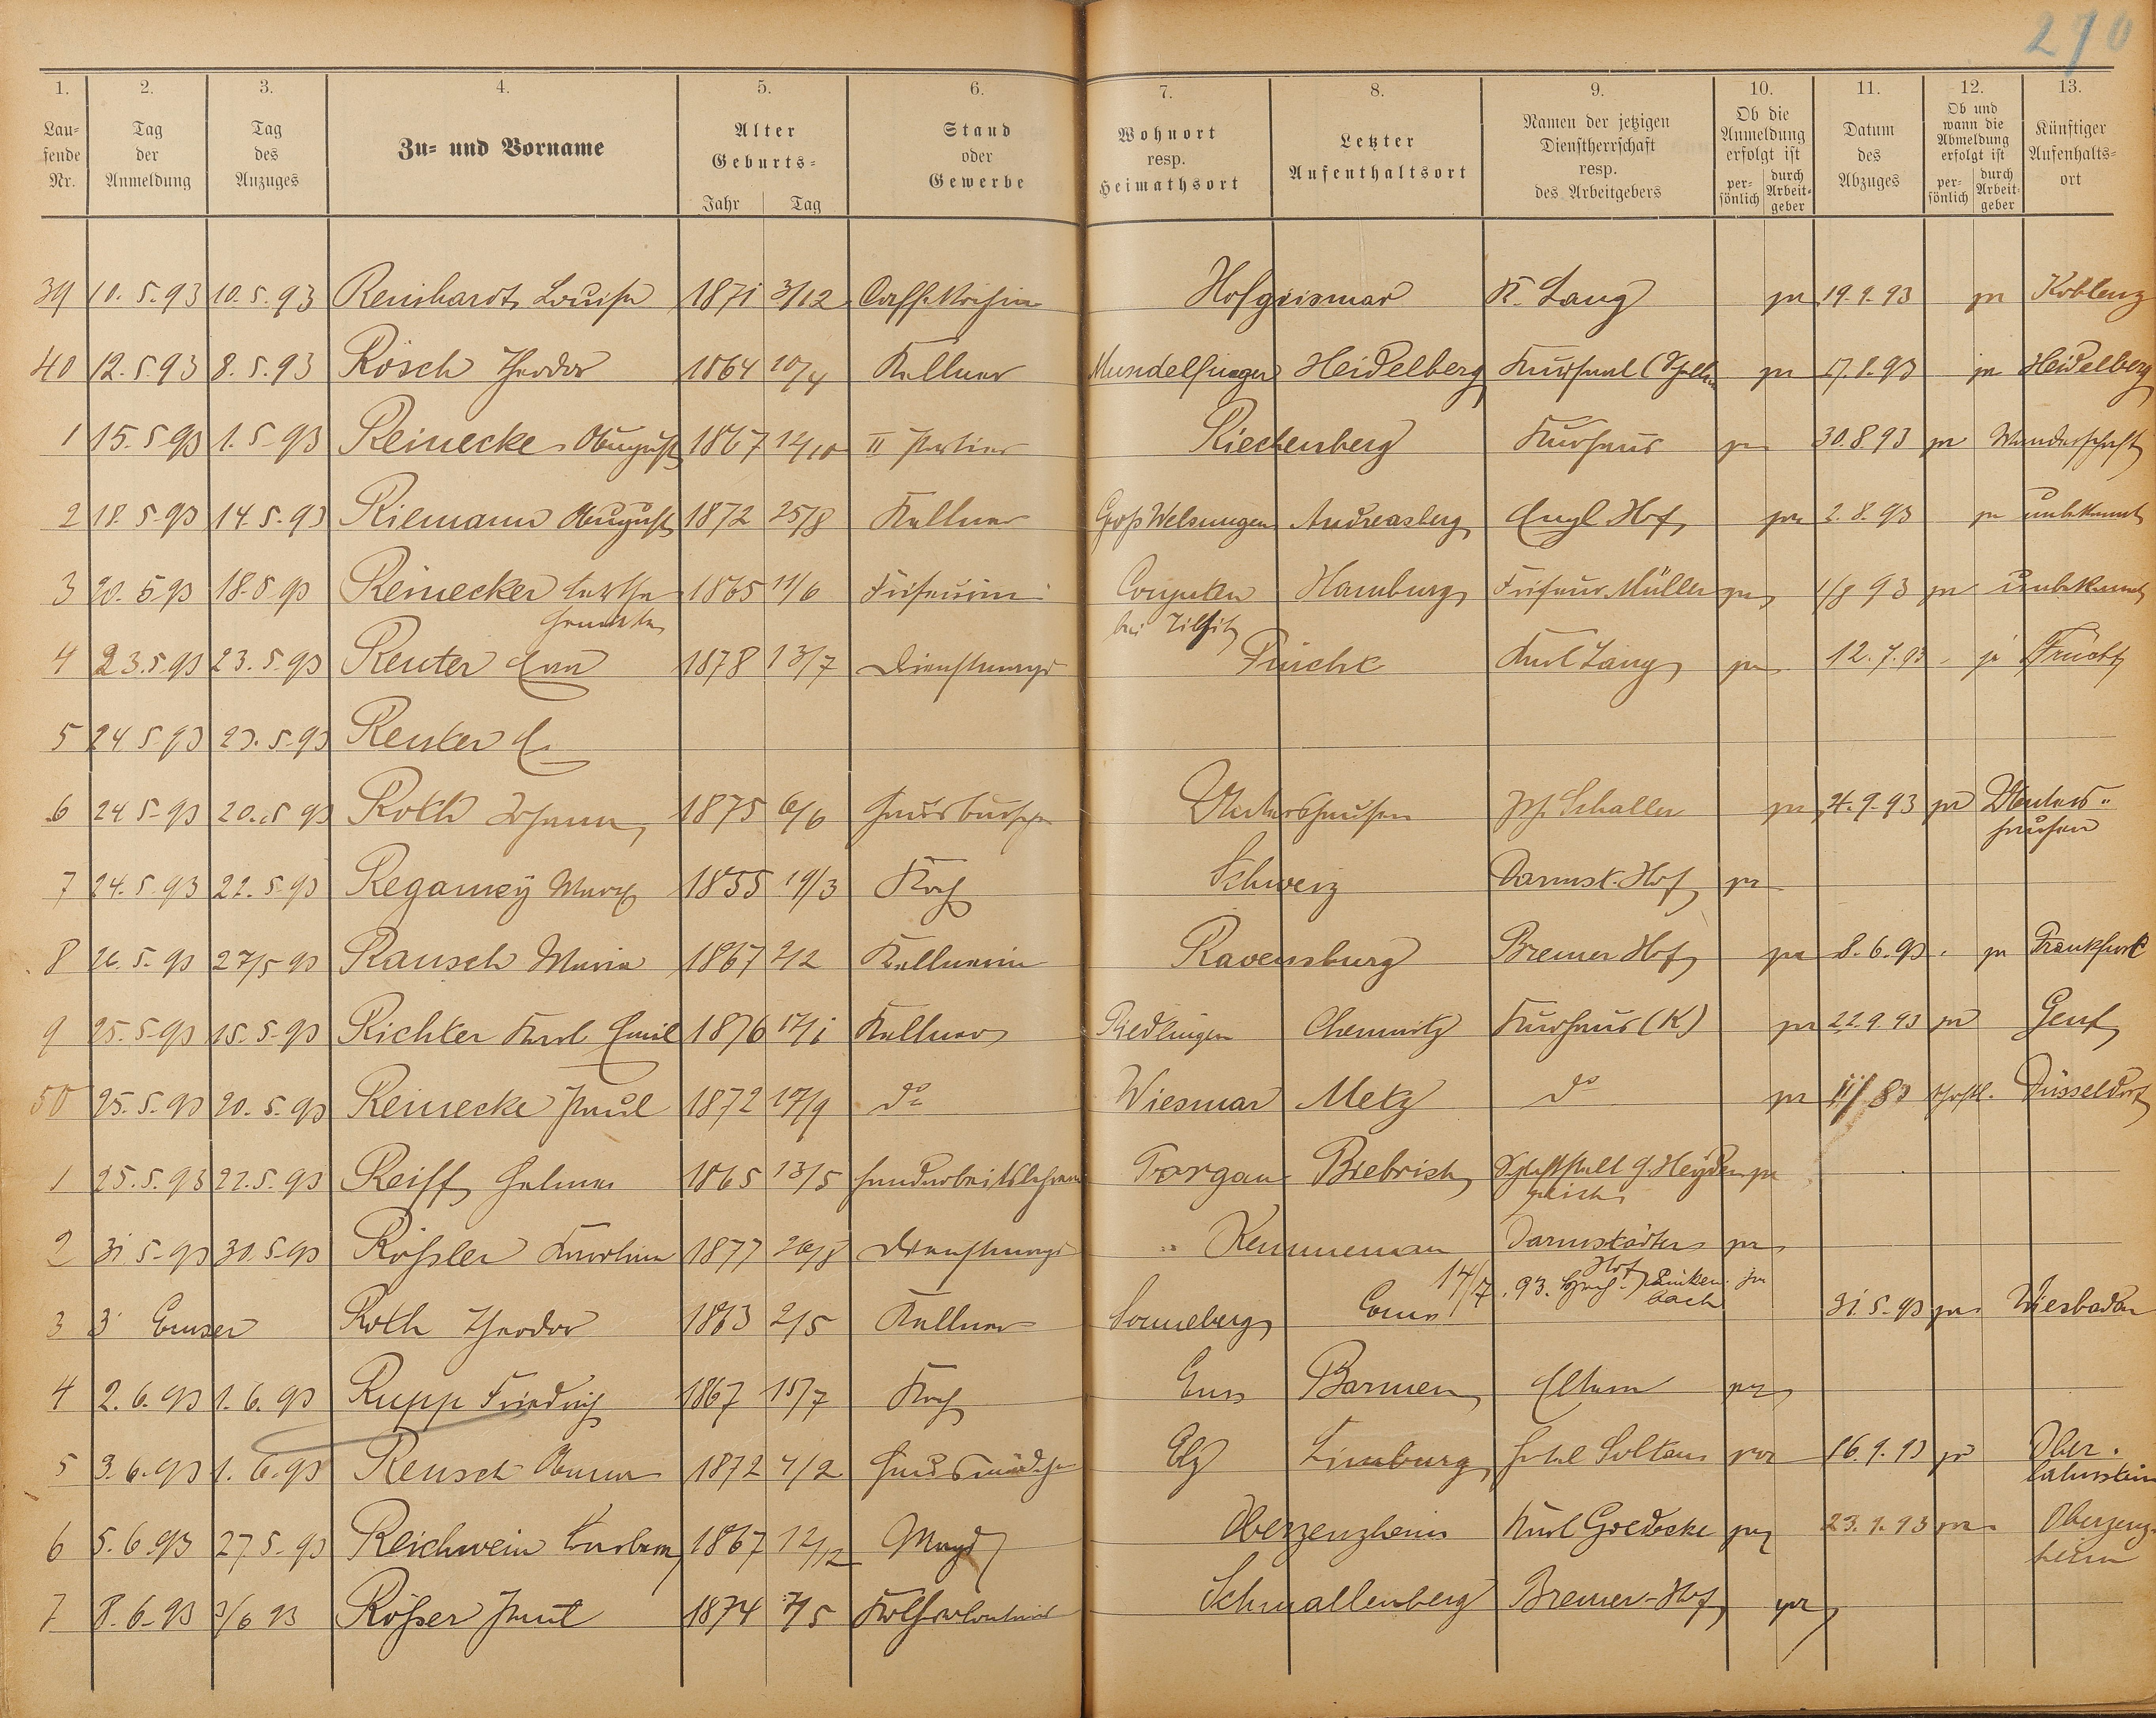 270
1. 2. 3. 4. 5. 6. 7. 8. 9. 10. 11. 12. 13.
Laufende Nr. Tag der Anmeldung Tag des Anzuges Zu- und Vorname Alter Geburts- Jahr Tag Stand oder Gewerbe Wohnort resp. Heimathsort Letzter Aufenthaltsort Namen der jetzigen Dienstherrschaft resp. des Arbeitgebers Ob die Anmeldung erfolgt ist persönlich durch Arbeitgeber Datum des Abzuges Ob und wann die Abmeldung erfolgt ist persönlich durch Arbeitgeber Künftiger Aufenthaltsort
39 10.5.93 10.5.93 Reinhardt Louise 1871 3/12 Hofgeismar K. Lang ja 19.9.93 ja Koblenz
40 12.5.93 8.5.93 Rösch Theodor 1864 10/4 Kellner Mundelfingen Heidelberg Kursaal ja 17.8.93 ja Heidelberg
1 15.5.93 1.5.93 Reinecke August 1867 12/10 II Portier Riechenberg Kurhaus ja 30.8.93 ja Wanderschaft
2 18.5.93 14.5.93 Riemann August 1872 25/8 Kellner Groß Welsungen Andreasberg Engl. Hof ja 2.8.93 ja unbekannt
3 20.5.93 18.5.93 Reinecker 1865 11/6 Friseurin Hamburg Friseur Müller ja 1/8 93 ja unbekannt
bei Tilsit
4 23.5.93 23.5.93 Reuter 1878 13/7 Dienstmagd Frücht Karl Lang ja 12.7.93 ja Frücht
5 24.5.93 23.5.93 Reuter
6 24.5.93 20.5.93 Roth Johann 1875 6/6 Hausbursche Untershausen Jos. Schaller ja 4.9.93 ja Untershausen
7 24.5.93 22.5.93 Regamey Marx 1855 19/3 Koch Schweiz Darmst. Hof ja
8 26.5.93 27/5 93 Rausch Maria 1867 2/2 Kellnerin Ravensburg Bremer Hof ja 8.6.93 ja Frankfurt
9 25.5.93 15.5.93 Richter Karl Emil 1876 17/1 Kellner Riedlingen Chemnitz Kurhaus (K) ja 22.9.93 ja Genf
50 25.5.93 20.5.93 Reinecke Paul 1872 19/9 do Wiesmar Metz do ja Düsseldorf
1 25.5.93 22.5.93 Reiff Helene 1865 13/5 Handarbeitslehrerin Torgau Biebrich ja
2 31.5.93 30.5.93 Roßler Karoline 1877 26/8 Dienstmagd Kemmenau Darmstädter Hof ja
3 3' Emser Roth Theodor 1863 2/5 Kellner Sonneberg Ems 14/7.93. ja 31.5.93 ja Wiesbaden
4 2.6.93 1.6.93 Rupp Friedrich 1867 15/7 Koch Ems Barmen Eltern ja
5 3.6.93 1.6.93 Reusch Anna 1872 4/2 Hausmädchen Elz Limburg Hotel Soltau ja 16.9.93 ja Oberlahnstein
6 5.6.93 27.5.93 Reichwein Barbara 1867 12/12 Magd Oberzeuzheim Karl Goedecke ja 23.9.93 ja Oberzeuzheim
7 8.6.93 3/6 93 Rößer Paul 1874 7/5 Schmallenberg Bremer-Hof ja